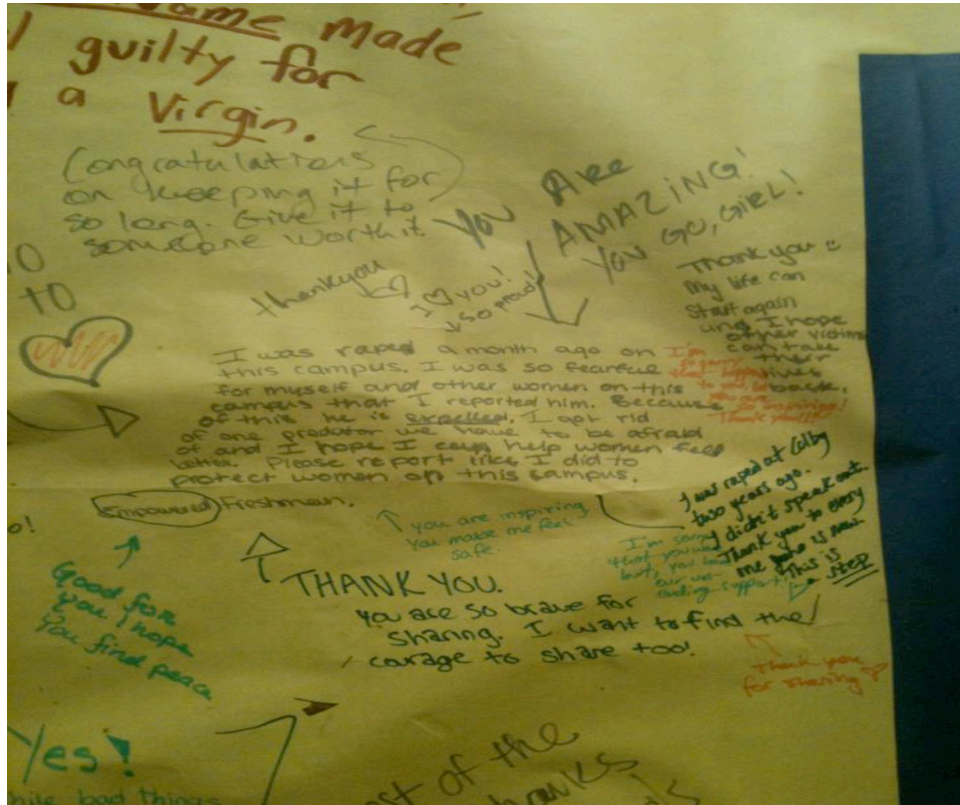 made
guilty for
a Virgin.
Congratulations
on keeping it for
so long. Give it to
someone worth it
YOU ARE
AMAZING!
YOU GO, GIRL!
thankyou
I ♡ you!
so proud!
Thank you
My life can
start again
and I hope
other victims
can take
their
lives
back.
TO
I was raped a month ago on
this campus. I was so fearful
for myself and other women on this
campus that I reported him. Because
of this he is expelled. I got rid
of one predator we have to be afraid
of and I hope I can help women feel
better. Please report like I did to
protect women on this campus.
Empowered Freshman.
I'm
so sorry
to you
inspiring!
Thank you!!
I was raped at Colby
two years ago.
I didn't speak out.
Thank you to every
one who is now.
This is
a step
you are inspiring
you make me feel
safe.
I'm sorry
that you were
hurt, you have
our un-
ending support!
Good for
you, I hope
you find peace
THANK YOU.
you are so brave for
sharing. I want to find the
courage to share too!
Thank you
for sharing
Yes!
bad things
of the